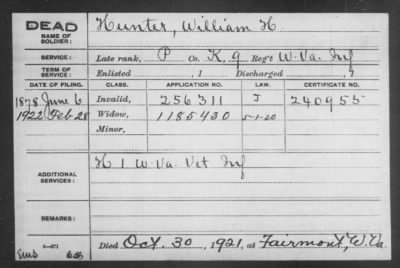 DEAD Hunter, William H.
NAME OF SOLDIER:
SERVICE: Late rank, P Co. K, 9 Reg't W. Va. Inf
TERM OF SERVICE: Enlisted , 1 Discharged , 1
DATE OF FILING. CLASS. APPLICATION NO. LAW. CERTIFICATE NO.
1878 June 6 Invalid, 256311 J 240955
1922 Feb 28 Widow, 1185430 5-1-20
Minor,
ADDITIONAL SERVICES: H 1 W. Va. Vet Inf
REMARKS:
Died Oct. 30, 1921, at Fairmont, W. Va.